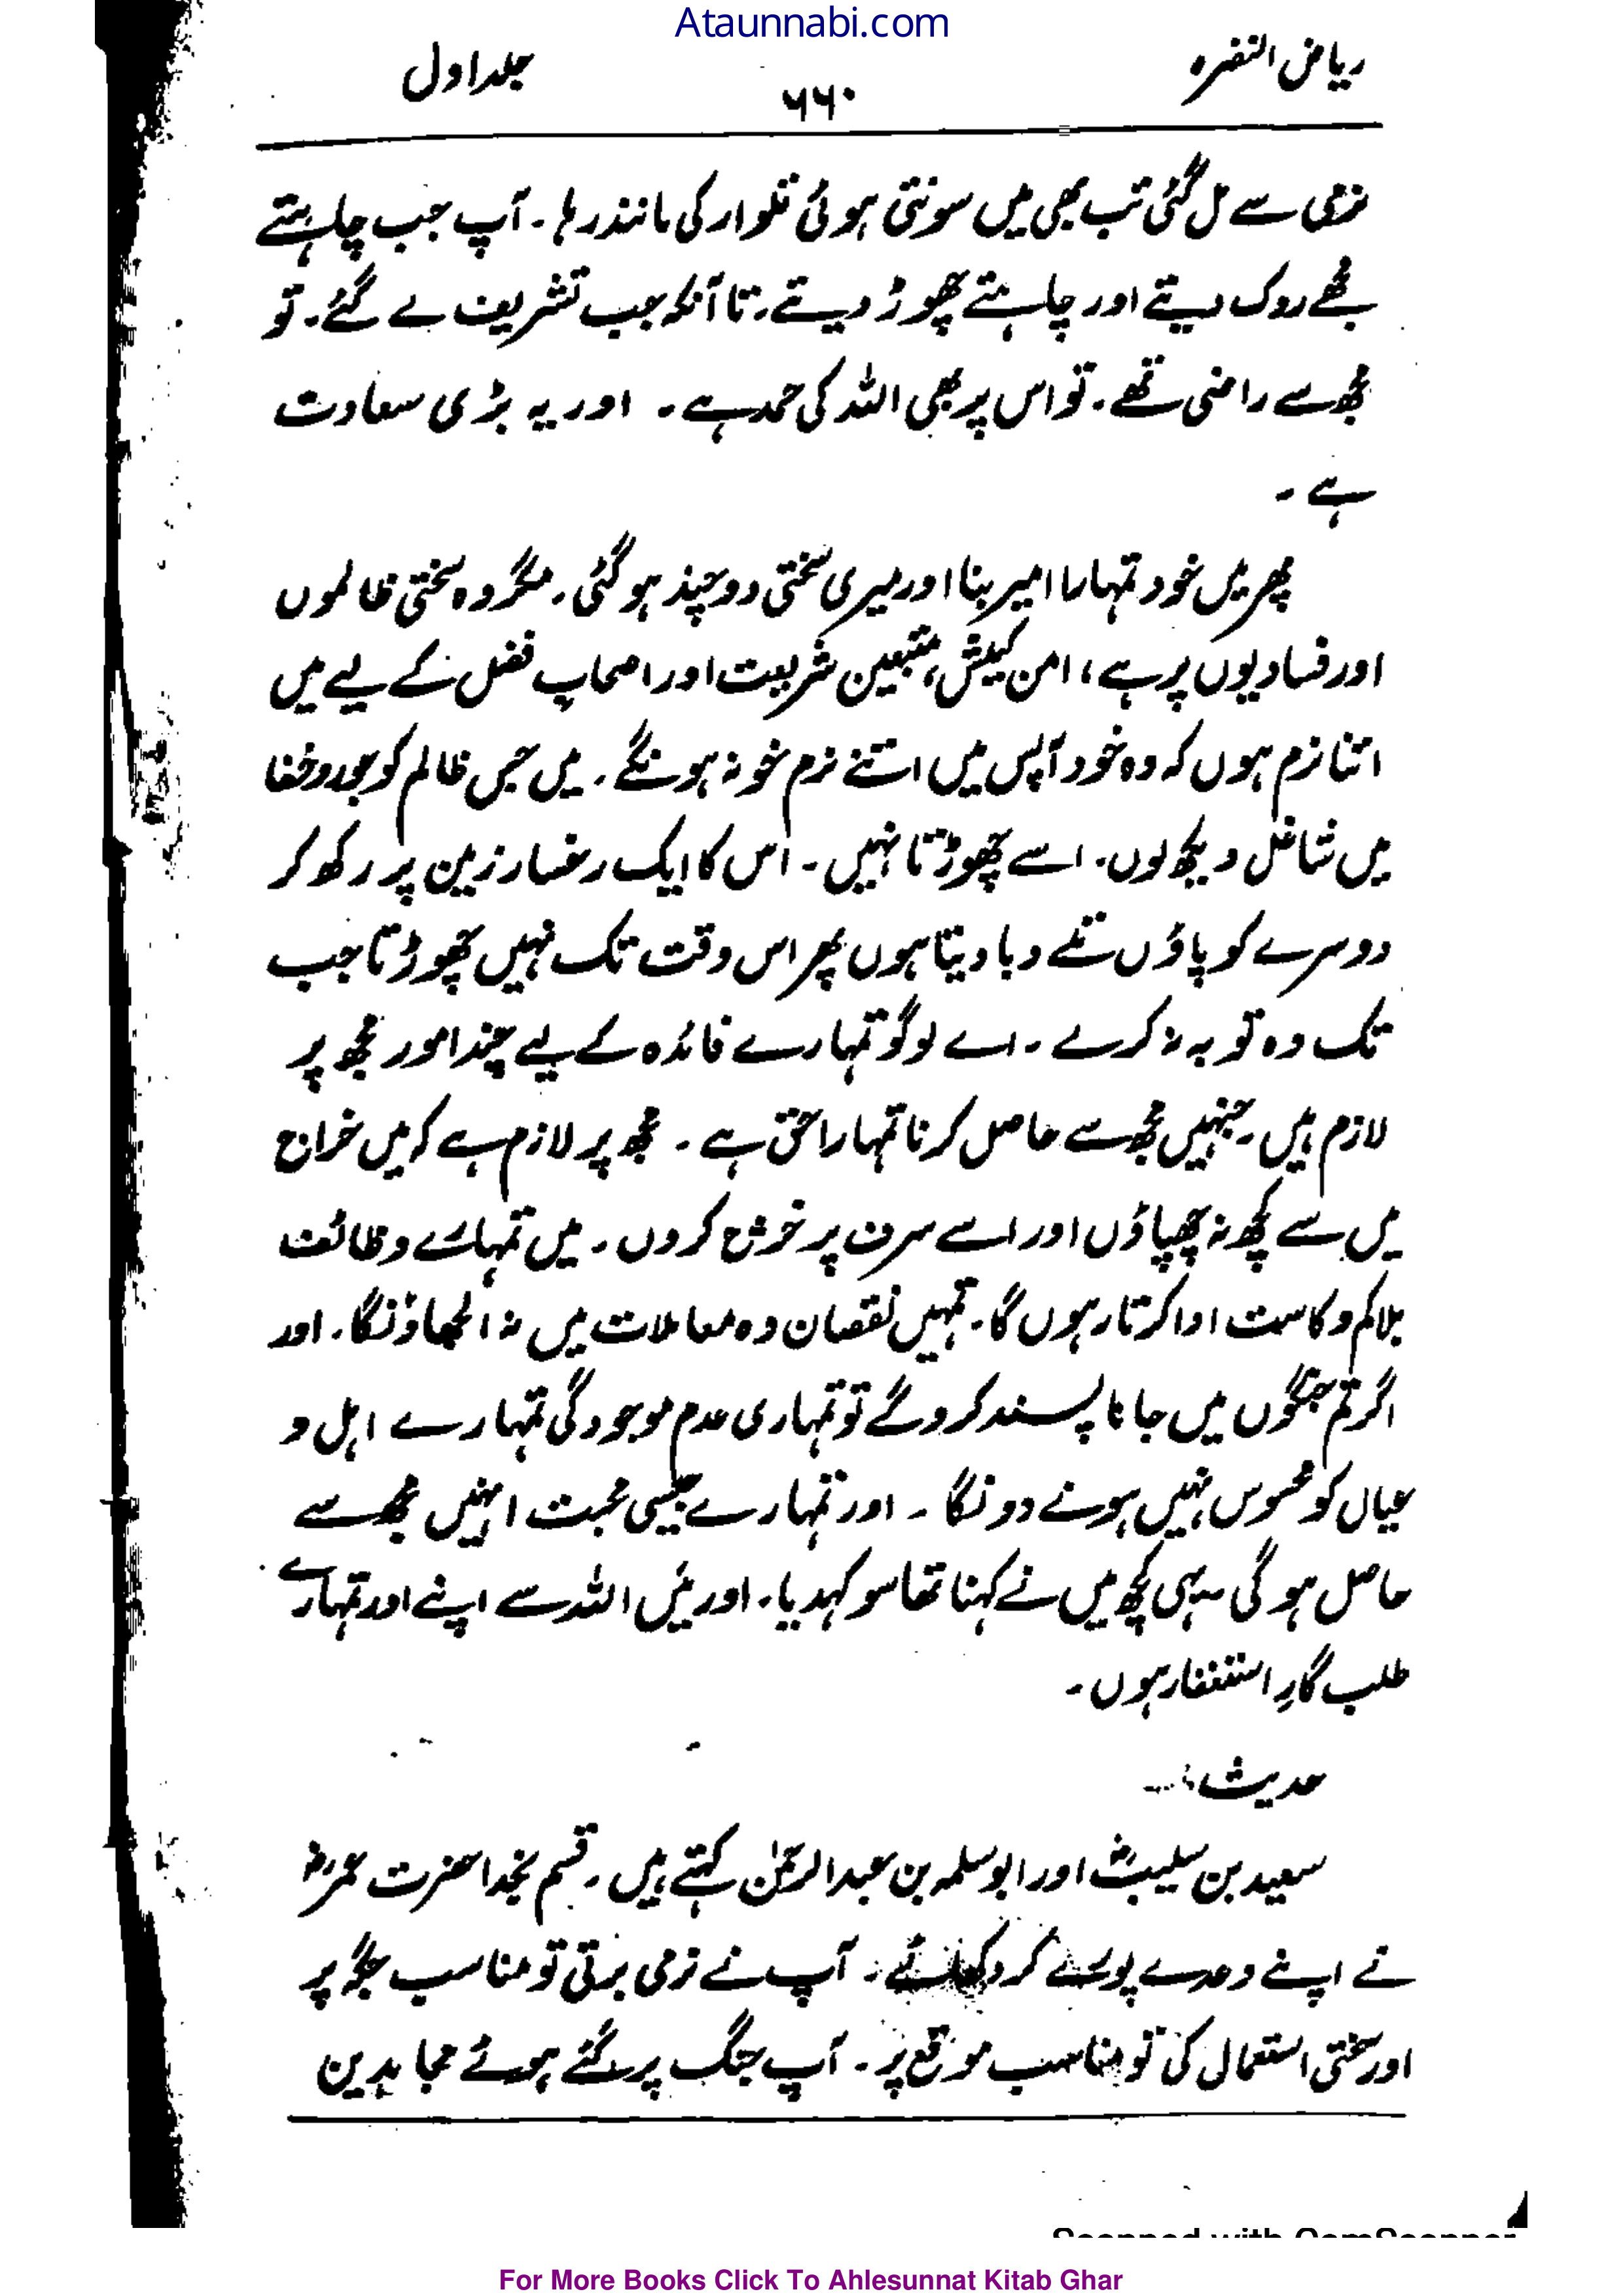 Ataunnabi.com
ریاض النضرہ ۶۶۰ جلد اول
نرمی سے مل گئی تب بھی میں سونتی ہوئی تلوار کی مانند رہا۔ آپ جب چاہتے
مجھے روک دیتے اور چاہتے چھوڑ دیتے۔ تا آنکہ جب تشریف لے گئے۔ تو
مجھ سے راضی تھے۔ تو اس پر بھی اللہ کی حمد ہے۔ اور یہ بڑی سعادت
ہے۔
پھر میں خود تمہارا امیر بنا اور میری سختی دو چند ہو گئی۔ مگر وہ سختی ظالموں
اور فسادیوں پر ہے، امن کیش، متبعین شریعت اور اصحاب فضل کے لیے میں
اتنا نرم ہوں کہ وہ خود آپس میں اتنے نرم خو نہ ہونگے۔ میں جس ظالم کو جور و جفا
میں شاغل دیکھ لوں۔ اسے چھوڑتا نہیں۔ اس کا ایک رخسار زمین پر رکھ کر
دوسرے کو پاؤں تلے دبا دیتا ہوں پھر اس وقت تک نہیں چھوڑتا جب
تک وہ توبہ نہ کرے۔ اے لوگو تمہارے فائدہ کے لیے چند امور مجھ پر
لازم ہیں۔ جنہیں مجھ سے حاصل کرنا تمہارا حق ہے۔ مجھ پر لازم ہے کہ میں خراج
میں سے کچھ نہ چھپاؤں اور اسے سرف پر خرچ کروں۔ میں تمہارے وظائف
بلا کم و کاست ادا کرتا رہوں گا۔ تمہیں نقصان دہ معاملات میں نہ الجھاؤنگا۔ اور
اگر تم جنگوں میں جانا پسند کرو گے تو تمہاری عدم موجودگی تمہارے اہل و
عیال کو محسوس نہیں ہونے دونگا۔ اور تمہارے جیسی محبت انہیں مجھ سے
حاصل ہو گی۔ یہی کچھ میں نے کہنا تھا سو کہدیا۔ اور میں اللہ سے اپنے اور تمہارے
طلب گارِ استغفار ہوں۔
حدیث:۔
سعید بن مسیبؓ اور ابو سلمہ بن عبدالرحمٰن کہتے ہیں۔ قسم بخدا حضرت عمرؓ
نے اپنے وعدے پورے کر دکھائے۔ آپ نے نرمی برتی تو مناسب جگہ پر
اور سختی استعمال کی تو مناسب موقع پر۔ آپ جنگ پر گئے ہوئے مجاہدین
Scanned with CamScanner
For More Books Click To Ahlesunnat Kitab Ghar